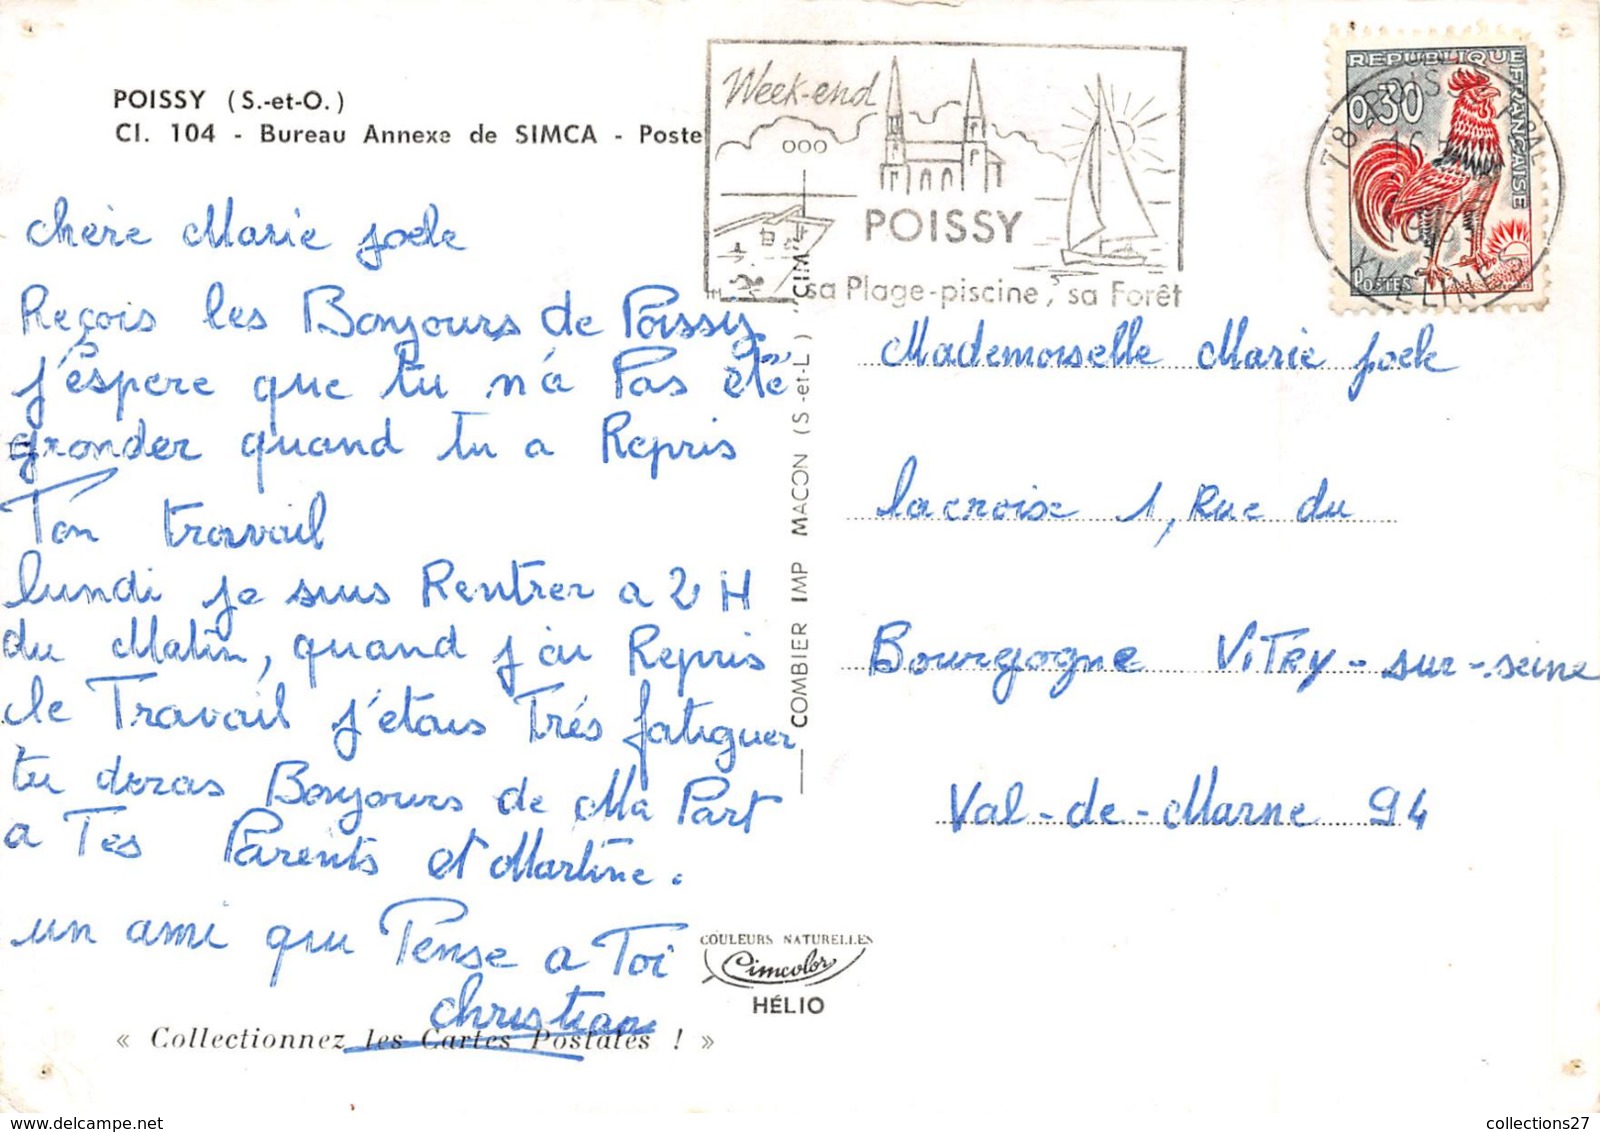 POISSY (S.-et-O.)
Cl. 104 - Bureau Annexe de SIMCA - Poste
chère Marie joele
Reçois les Bonjours de Poissy
j'éspere que tu n'a Pas été
gronder quand tu a Repris
Ton travail
lundi je suis Rentrer a 2 H
du Matin, quand j'ai Repris
le Travail j'étais Trés fatiguer
tu deras Bonjours de Ma Part
a Tes Parents et Martine.
un ami qui Pense a Toi
christian
« Collectionnez les Cartes Postales ! »
COULEURS NATURELLES
Cimcolor
HÉLIO
COMBIER IMP MACON (S-et-L) "CIM"
Week-end
POISSY
sa Plage-piscine, sa Forêt
REPUBLIQUE FRANÇAISE
0,30
POSTES
78 POISSY
16
YVELINES
Mademoiselle Marie joele
lacroix 1, Rue du
Bourgogne ViTRy-sur-seine
Val-de-Marne 94
collections27